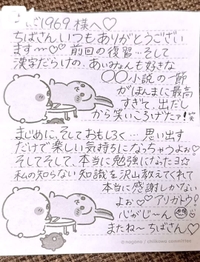 1969様へ♡
ちばさんいつもありがとうござい
ます〜♡前回の復習…そして
漢字だらけの、あいみょんも好きな
〇〇小説の一節
がほんまに最高
すぎて、出だし
から笑いころげたァ!
まじめに、そしておもしろく…思い出す
だけで楽しい気持ちになっちゃうよぉ♡
そしてそして、本当に勉強になったヨ☆
私の知らない知識を沢山教えてくれて
本当に感謝しかない
よぉ♡アリガトウ♡
心がじーん
またね〜ちばさん♡